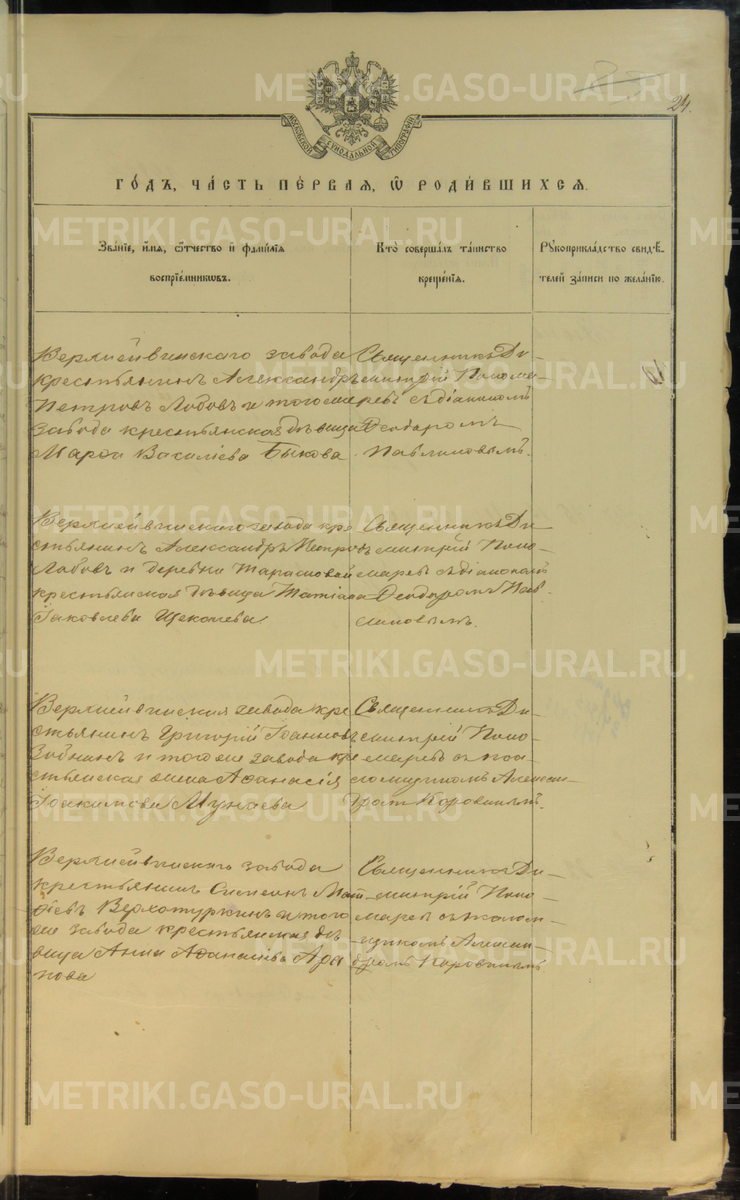 24.
МОСКОВСКОЙ СѴНОДАЛЬНОЙ ТИПОГРАФІИ
ГО́ДЪ, ЧА́СТЬ ПЕ́РВАЯ, Ѿ РОДИ́ВШИХСЯ.
Зва́нїе, и́мя, ѻ҆́тчество и҆ фамѝлїя
воспрїе́мникѡвъ.
Кто̀ соверша́лъ та́инство
креще́нїя.
Рꙋкоприкла́дство свидѣ́-
телей за́писи по жела́нїю.
Верхисетскаго завода
крестьянинъ Александръ
Петровъ Лобовъ и того же
завода крестьянская дѣвица
Марѳа Василіева Быкова
Священникъ Ди-
митрій Поно-
маревъ съ діакономъ
Ѳеодоромъ
Павлиновымъ.
завода кре
стьянинъ Александръ Петровъ
Лобовъ и деревни Тарасковой
крестьянская дѣвица Татіана
Іаковлева Щекалева
Священникъ Ди-
митрій Поно-
маревъ съ діакономъ
Ѳеодоромъ Пав-
линовымъ.
завода кре
стьянинъ Григорій Іоанновъ
Зобнинъ и того же завода кре
стьянская жена Аѳанасія
Іоакимова
Священникъ Ди-
митрій Поно-
маревъ съ пса-
ломщикомъ Алексан-
дромъ Коровинымъ.
завода
крестьянинъ Симеонъ Мат
ѳіевъ Верхотуркинъ и того
же завода крестьянская дѣ-
вица Анна Аѳанасіева Ара
пова
Священникъ Ди-
митрій Поно-
маревъ съ псалом-
щикомъ Алексан-
дромъ Коровинымъ
METRIKI.GASO-URAL.RU